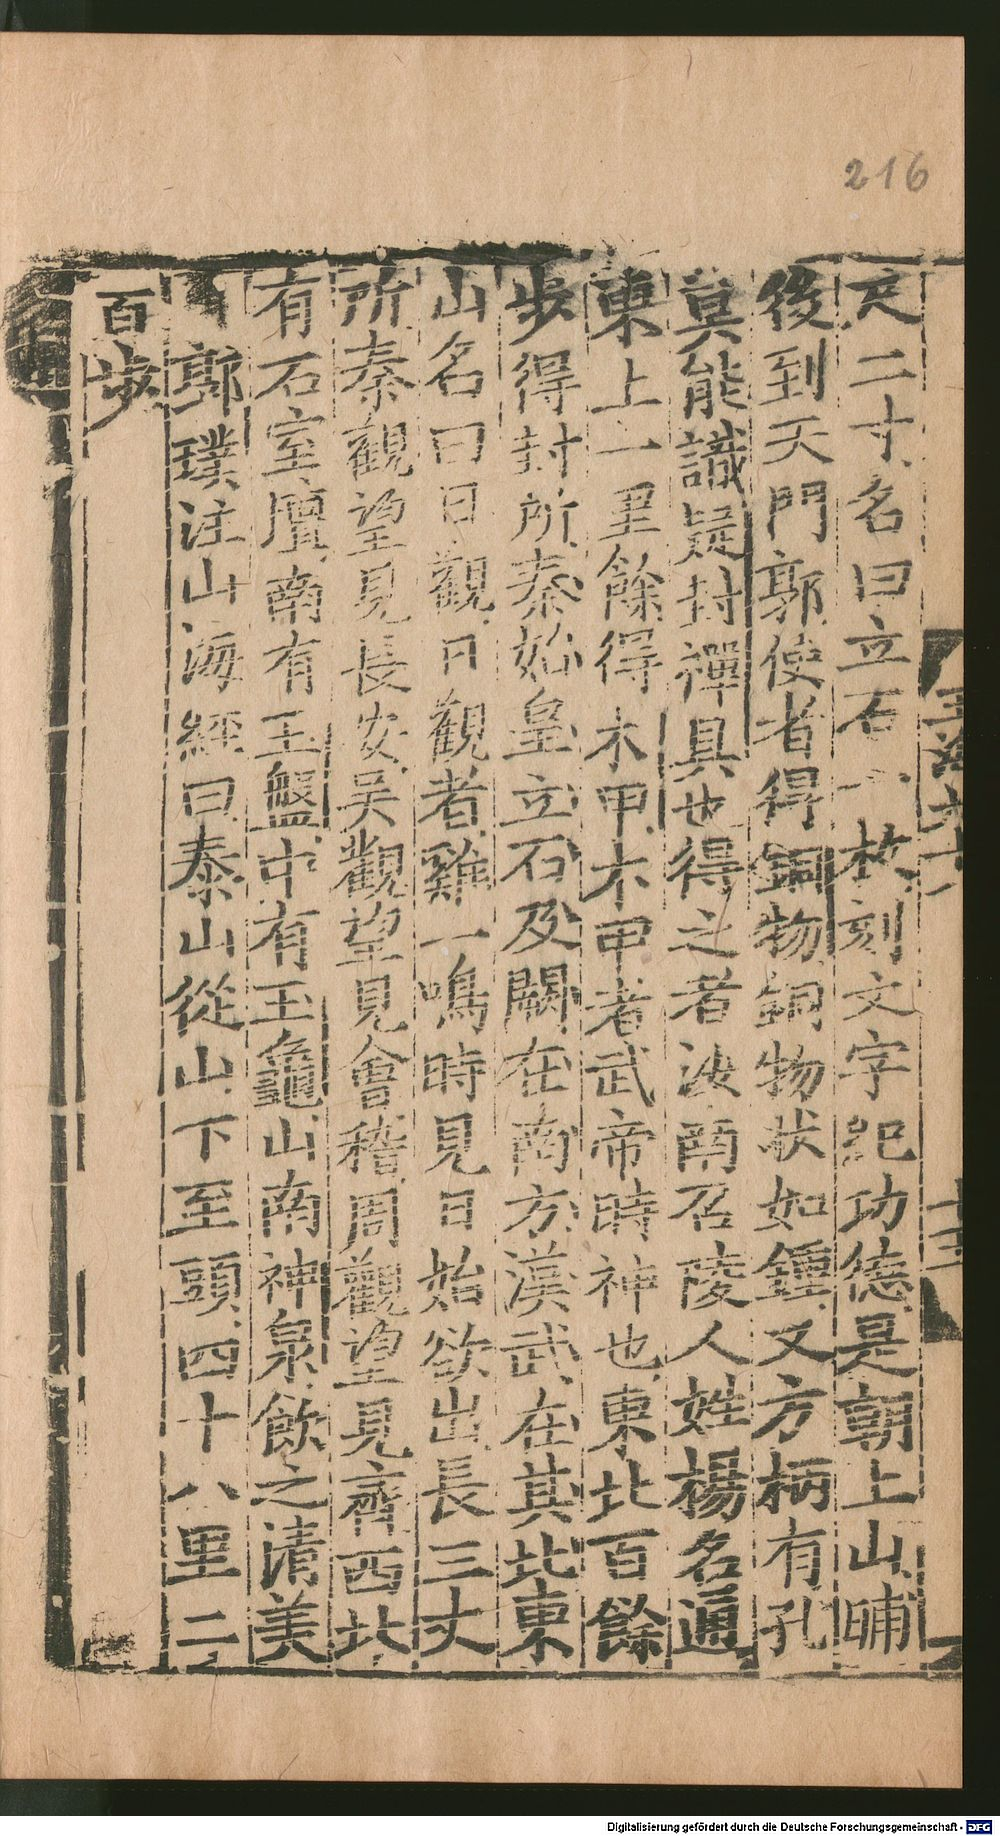 216
尺二寸名曰立石一枚刻文字紀功德是朝上山晡
後到天門郭使者得銅物銅物狀如鍾又方柄有孔
莫能識疑封禪具也得之者汝南召陵人姓楊名通
東上一里餘得木甲木甲者武帝時神也東北百餘
步得封所秦始皇立石及闕在南方漢武在其北東
山名曰日觀日觀者雞一鳴時見日始欲出長三丈
所秦觀望見長安吳觀望見會稽周觀望見齊西北
有石室壇南有玉盤中有玉龜山南神泉飲之清美
郭璞注山海經曰泰山從山下至頭四十八里二
百步
十三
Digitalisierung gefördert durch die Deutsche Forschungsgemeinschaft - DFG